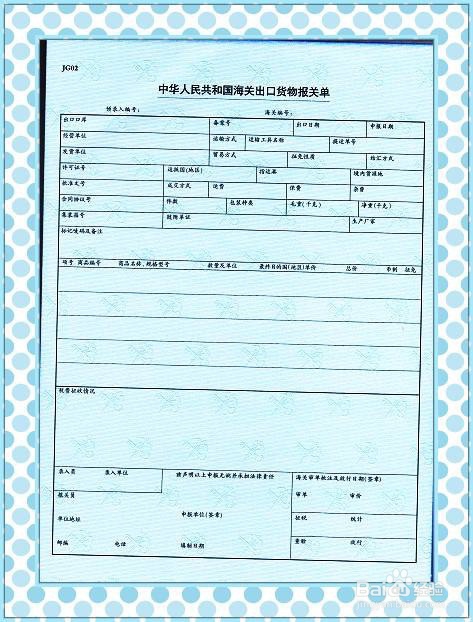 JG02
中华人民共和国海关出口货物报关单
预录入编号： 海关编号：
出口口岸 备案号 出口日期 申报日期
经营单位 运输方式 运输工具名称 提运单号
发货单位 贸易方式 征免性质 结汇方式
许可证号 运抵国(地区) 指运港 境内货源地
批准文号 成交方式 运费 保费 杂费
合同协议号 件数 包装种类 毛重(千克) 净重(千克)
集装箱号 随附单证 生产厂家
标记唛码及备注
项号 商品编号 商品名称、规格型号 数量及单位 最终目的国(地区)单价 总价 币制 征免
税费征收情况
录入员 录入单位 兹声明以上申报无讹并承担法律责任 海关审单批注及放行日期(签章)
报关员 审单 审价
申报单位(签章)
单位地址 征税 统计
邮编 电话 填制日期 查验 放行
Baidu经验